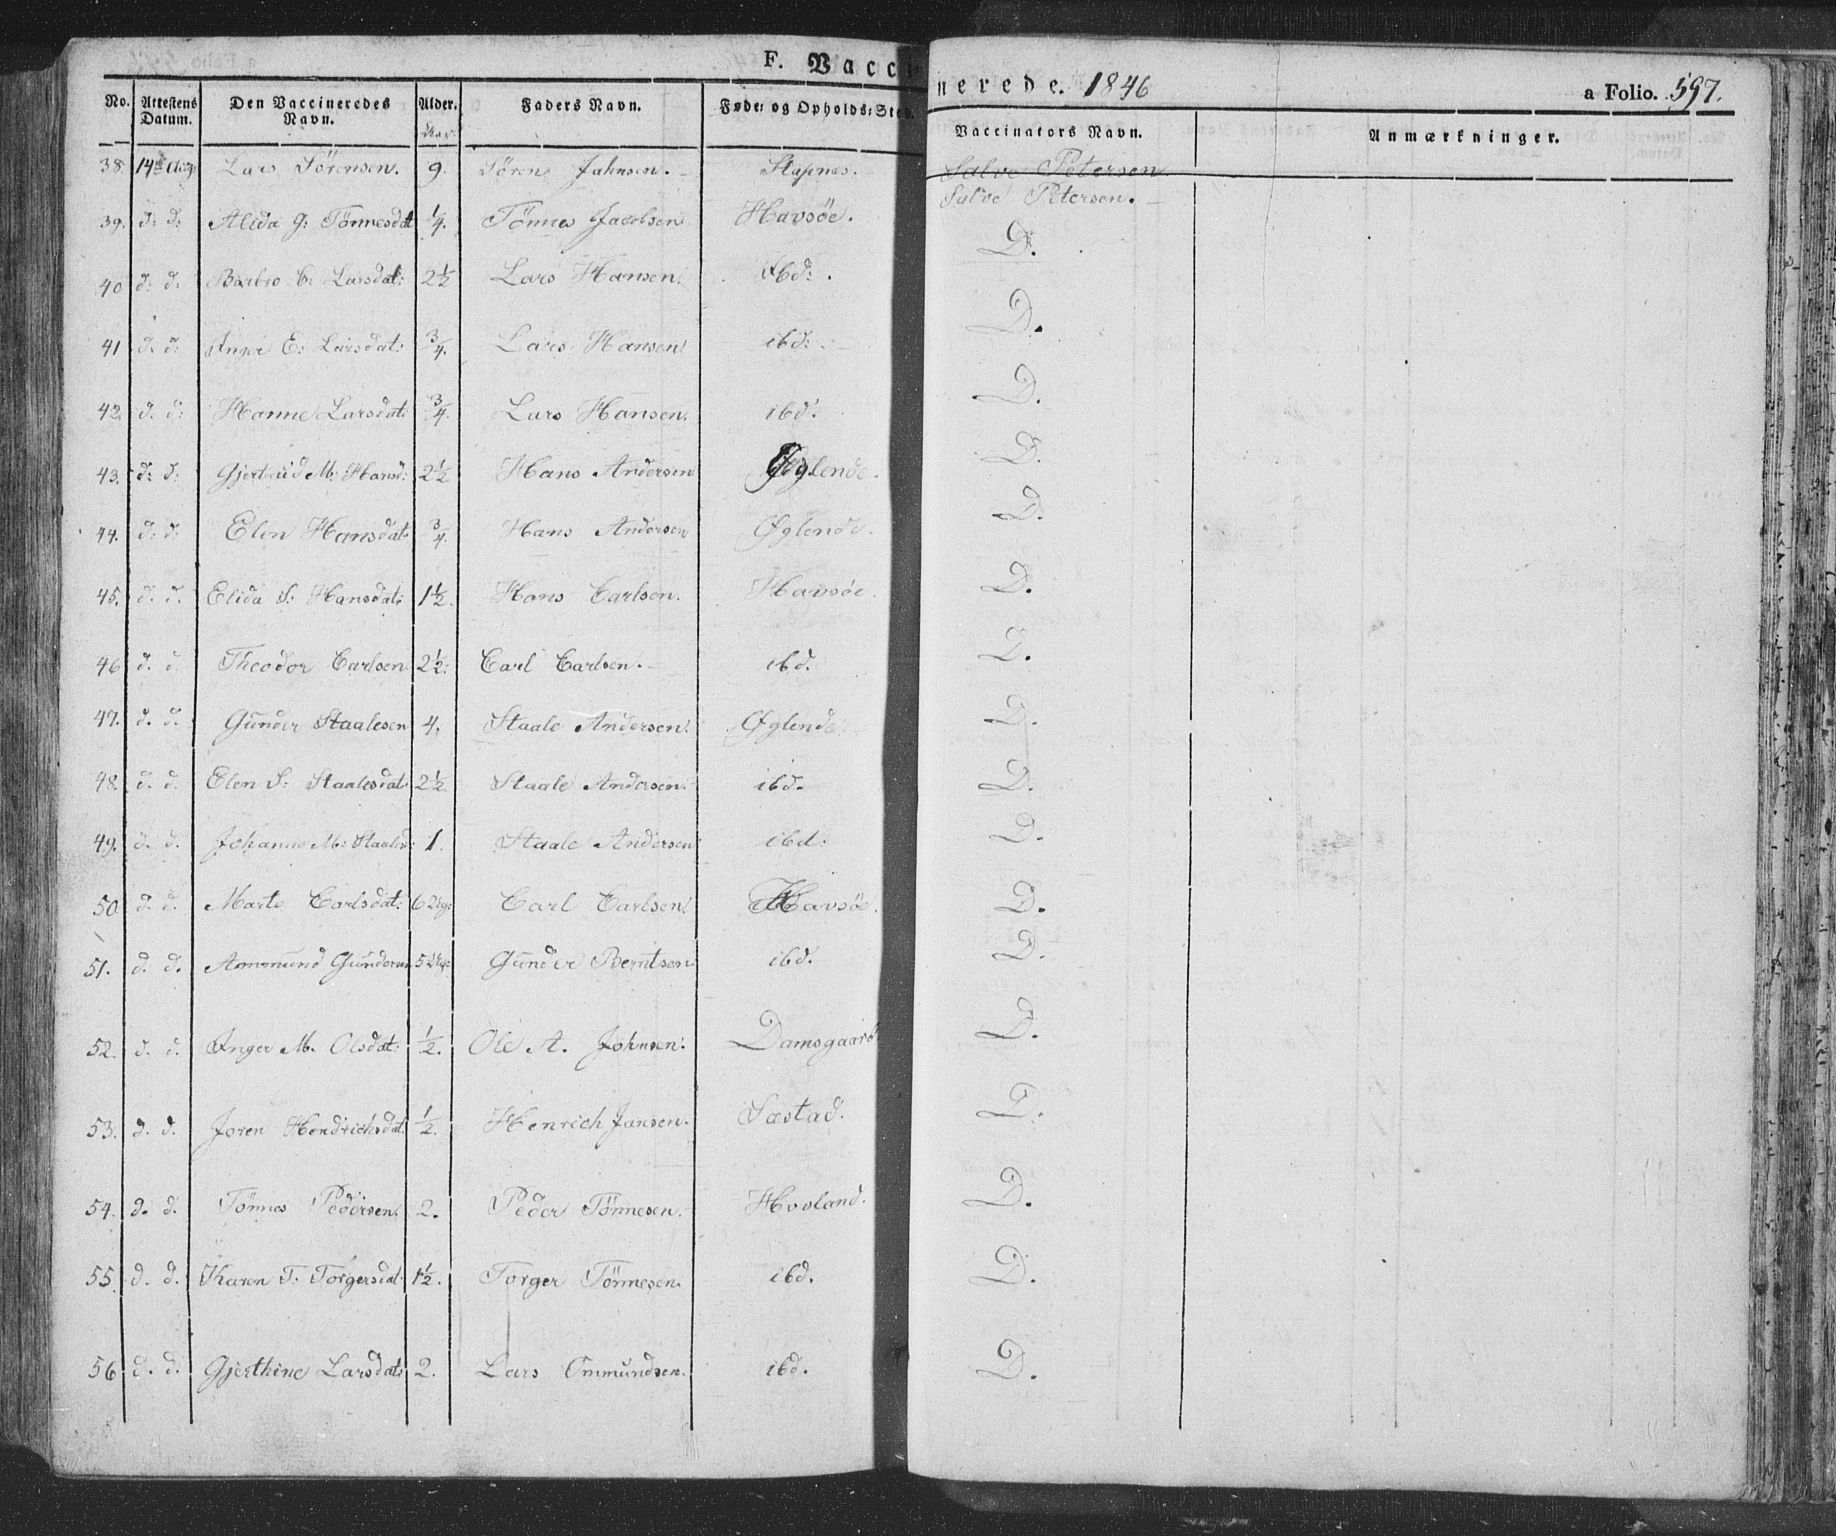 F. Vaccinerede. 1846 a Folio. 597.
No. Attestens Datum. Den Vaccineredes Navn. Alder. Faders Navn. Føde- og Opholds-Sted. Vaccinators Navn. Anmærkninger.
38. 14de Aug: Lars Sörensen. 9. Sören Jahnsen. Stapnæs. Salve Petersen
Salve Petersen.
39. d: d: Alida G: Tönnesdat 1/4. Tönnes Jacobsen Havsöe. D.
40 d: d: Barbro C: Larsdat: 2 1/2 Lars Hansen. ibd: D.
41 d: d: Inger E: Larsdat: 3/4. Lars Hansen ibd: D.
42. d: d: Hanne Larsdat: 3/4. Lars Hansen. ibd. D.
43. d: d: Gjertrud M: Hansd: 2 1/2 Hans Andersen Øglende. D.
44. d: d: Elen Hansdat 3/4. Hans Andersen Øglende. D.
45. d. d. Elida S: Hansdat: 1 1/2. Hans Carlsen. Havsöe. D.
46 d. d. Theodor Carlsen 2 1/2: Carl Carlsen. ibd. D.
47. d. d. Gunder Staalesen 4. Staale Andersen. Øglende D.
48. d. d. Elen S: Staalesdat 2 1/2 Staale Andersen. ibd. D.
49. d. d. Johanne M: Staalesd: 1. Staale Andersen ibd: D.
50 d. d. Marte Carlsdat: 6 Ug: Carl Carlsen. Havsöe. D.
51. d. d. Ammund Gundersen 5 Ug: Gunder Berntsen ibd. D.
52. d. d. Inger M. Olsdat: 1/2. Ole A. Johnsen. Damsgaard D.
53. d. d. Joren Hendrichsdat. 1/2. Henrich Jansen. Sæstad. D.
54. d. d. Tönnes Pedersen. 2. Peder Tönnesen. Hovland. D.
55. d. d. Karen T: Torgersdat. 1 1/2. Torger Tönnesen. ibd. D.
56 d. d. Gjerthine Larsdat: 2. Lars Ommundsen. ibd. D.